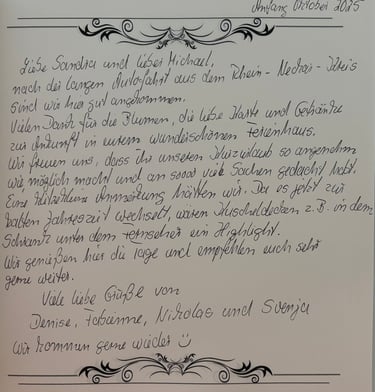 Anfang Oktober 2025
Liebe Sandra und lieber Michael,
nach der langen Autofahrt aus dem Rhein-Neckar-Kreis
sind wir hier gut angekommen.
Vielen Dank für die Blumen, die liebe Karte und Getränke
zur Ankunft in eurem wunderschönen Ferienhaus.
Wir freuen uns, dass ihr unseren Kurzurlaub so angenehm
wie möglich macht und an sooo viele Sachen gedacht habt.
Eine klitzekleine Anmerkung hätten wir. Da es jetzt zur
kalten Jahreszeit wechselt, wären Kuscheldecken z.B. in dem
Schrank unter dem Fernseher ein Highlight.
Wir genießen hier die Tage und empfehlen euch sehr
gerne weiter.
Viele liebe Grüße von
Denise, Fabienne, Nikolas und Svenja
Wir kommen gerne wieder ☺